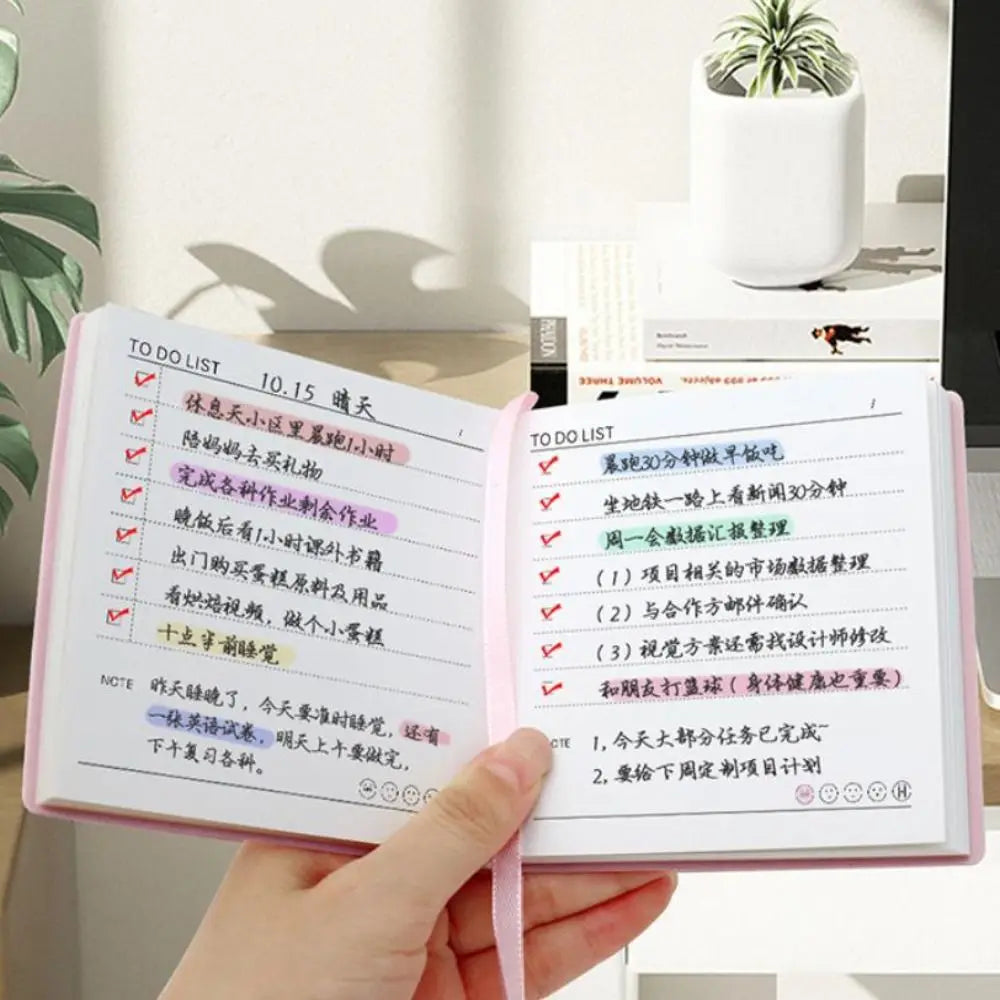 TO DO LIST
10.15 晴天
休息天小区里晨跑1小时
陪妈妈去买礼物
完成各科作业剩余作业
晚饭后看1小时课外书籍
出门购买蛋糕原料及用品
看烘焙视频，做个小蛋糕
十点半前睡觉
NOTE 昨天睡晚了，今天要准时睡觉，还有
一张英语试卷，明天上午要做完，
下午复习各科。
TO DO LIST
晨跑30分钟做早饭吃
坐地铁一路上看新闻30分钟
周一会数据汇报整理
（1）项目相关的市场数据整理
（2）与合作方邮件确认
（3）视觉方案还需找设计师修改
和朋友打篮球（身体健康也重要）
OTE 1，今天大部分任务已完成~
2，要给下周定制项目计划
H
PHAIDON
VOLUME THREE